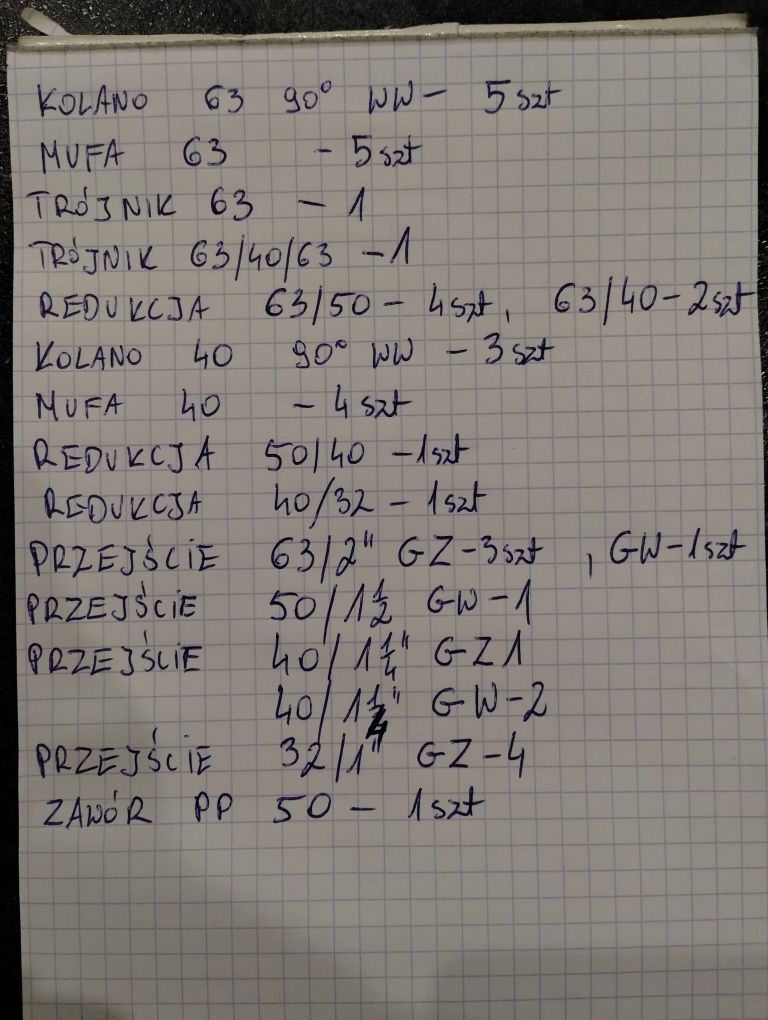 KOLANO 63 90° WW - 5 szt
MUFA 63 - 5 szt
TRÓJNIK 63 - 1
TRÓJNIK 63/40/63 - 1
REDUKCJA 63/50 - 4 szt, 63/40 - 2 szt
KOLANO 40 90° WW - 3 szt
MUFA 40 - 4 szt
REDUKCJA 50/40 - 1 szt
REDUKCJA 40/32 - 1 szt
PRZEJŚCIE 63/2" GZ - 3 szt, GW - 1 szt
PRZEJŚCIE 50/1 1/2 GW - 1
PRZEJŚCIE 40/1 1/4" GZ 1
40/1 1/4" GW - 2
PRZEJŚCIE 32/1" GZ - 4
ZAWÓR PP 50 - 1 szt